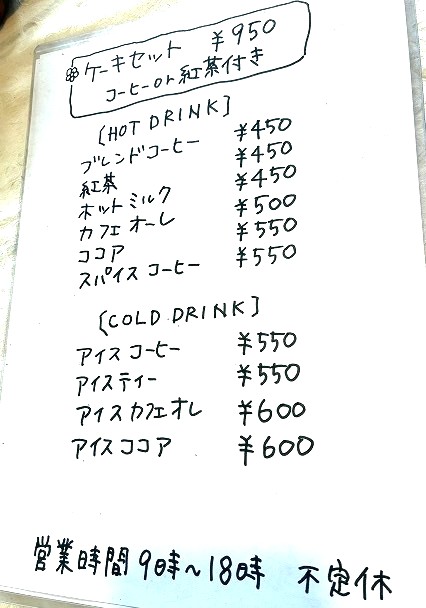 ❀ケーキセット ¥950
コーヒーor紅茶付き
[HOT DRINK]
ブレンドコーヒー ¥450
紅茶 ¥450
ホットミルク ¥450
カフェオーレ ¥500
ココア ¥550
スパイスコーヒー ¥550
[COLD DRINK]
アイスコーヒー ¥550
アイスティー ¥550
アイスカフェオレ ¥600
アイスココア ¥600
営業時間 9時～18時 不定休